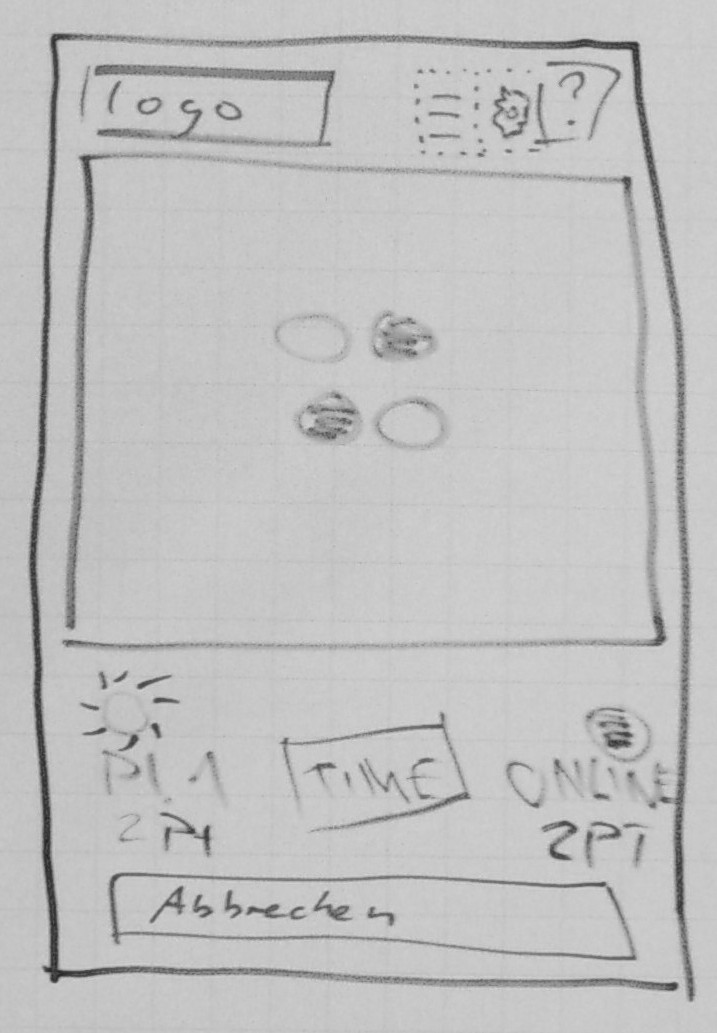 logo ?
Pl. 1 TIME ONLINE
2 Pt 2PT
Abbrechen